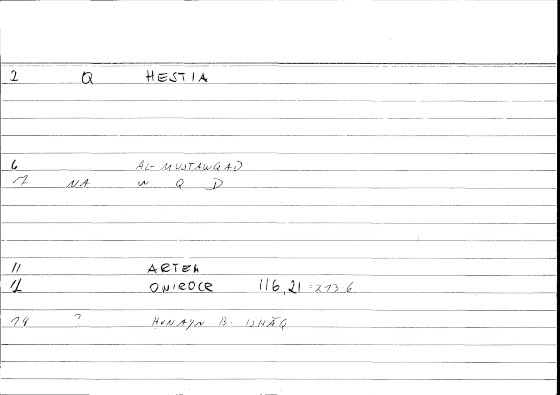 2 Q HESTIA
6 AL-MUSTAWQAD
7 NA W Q D
11 ARTEM
12 ONIROCR 116,21 = 213 6
14 ? HUNAYN B. ISHĀQ